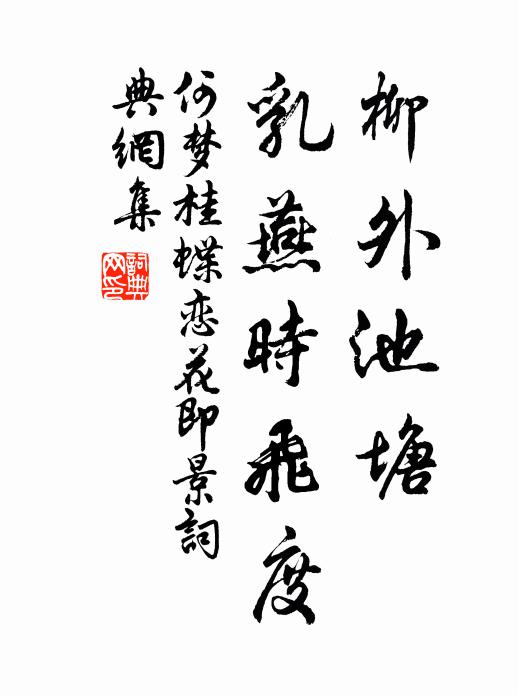 柳外池塘
乳燕時飛度
何梦桂蝶恋花即景詞
典網集
詞典网印